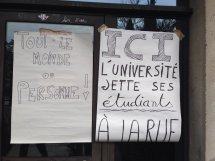 TOUT LE
MONDE
OU
PERSONNE!
ICI
L'UNIVERSITÉ
JETTE SES
étudiants
À LA RUE